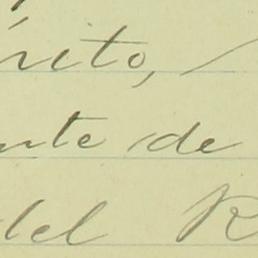 nito,
nte de
del R